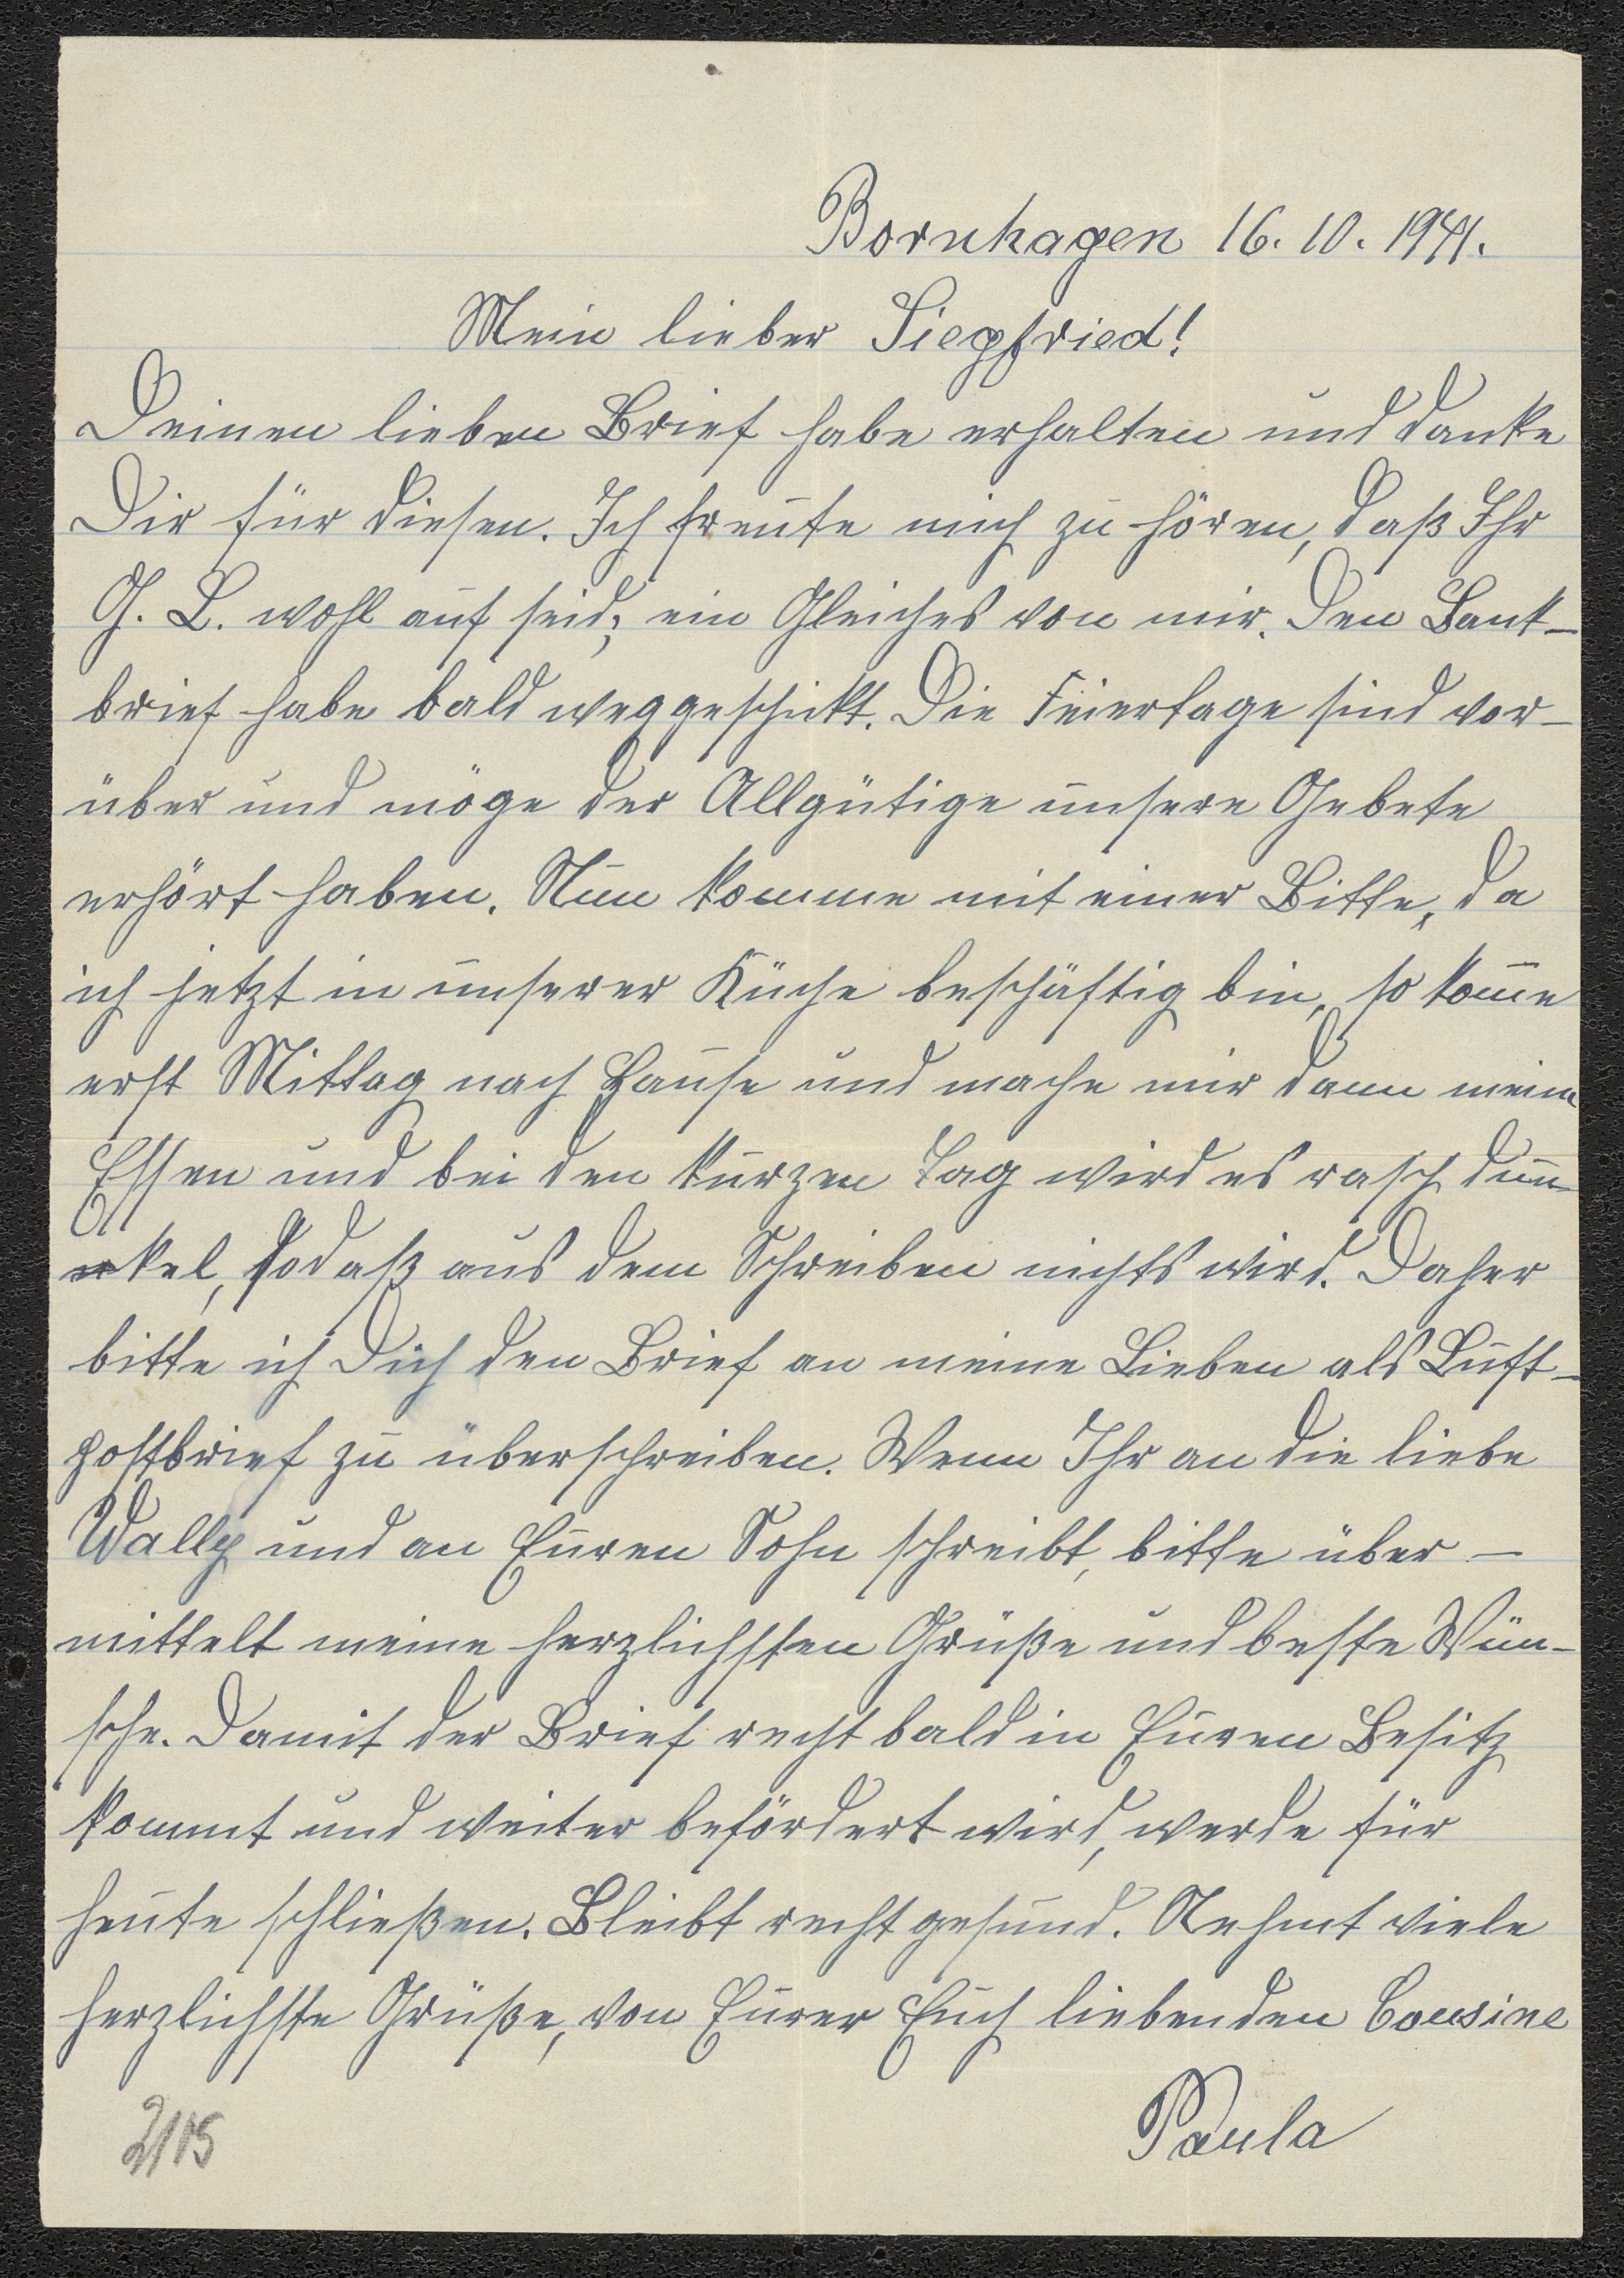 Bornhagen 16. 10. 1941.
Mein lieber Siegfried!
Deinen lieben Brief habe erhalten und danke
Dir für diesen. Ich freute mich zu hören, daß Ihr
G. L. wohl auf seid; ein Gleiches von mir. Den Bank-
brief habe bald weggeschickt. Die Feiertage sind vor-
über und möge der Allgütige unsere Gebete
erhört haben. Nun komme mit einer Bitte, da
ich jetzt in unserer Küche beschäftig bin, so kom̅e
erst Mittag nach Hause und mache mir dann mein
Essen und bei den kurzen Tag wird es rasch dun-
kel, sodaß aus dem Schreiben nichts wird. Daher
bitte ich Dich den Brief an meine Lieben als Luft-
postbrief zu überschreiben. Wenn Ihr an die liebe
Wally und an Euren Sohn schreibt, bitte über-
mittelt meine herzlichsten Grüße und beste Wün-
sche. Damit der Brief recht bald in Euren Besitz
kommt und weiter befördert wird, werde für
heute schließen. Bleibt recht gesund. Nehmt viele
herzlichste Grüße, von Eurer Euch liebenden Cousine
Paula
2115